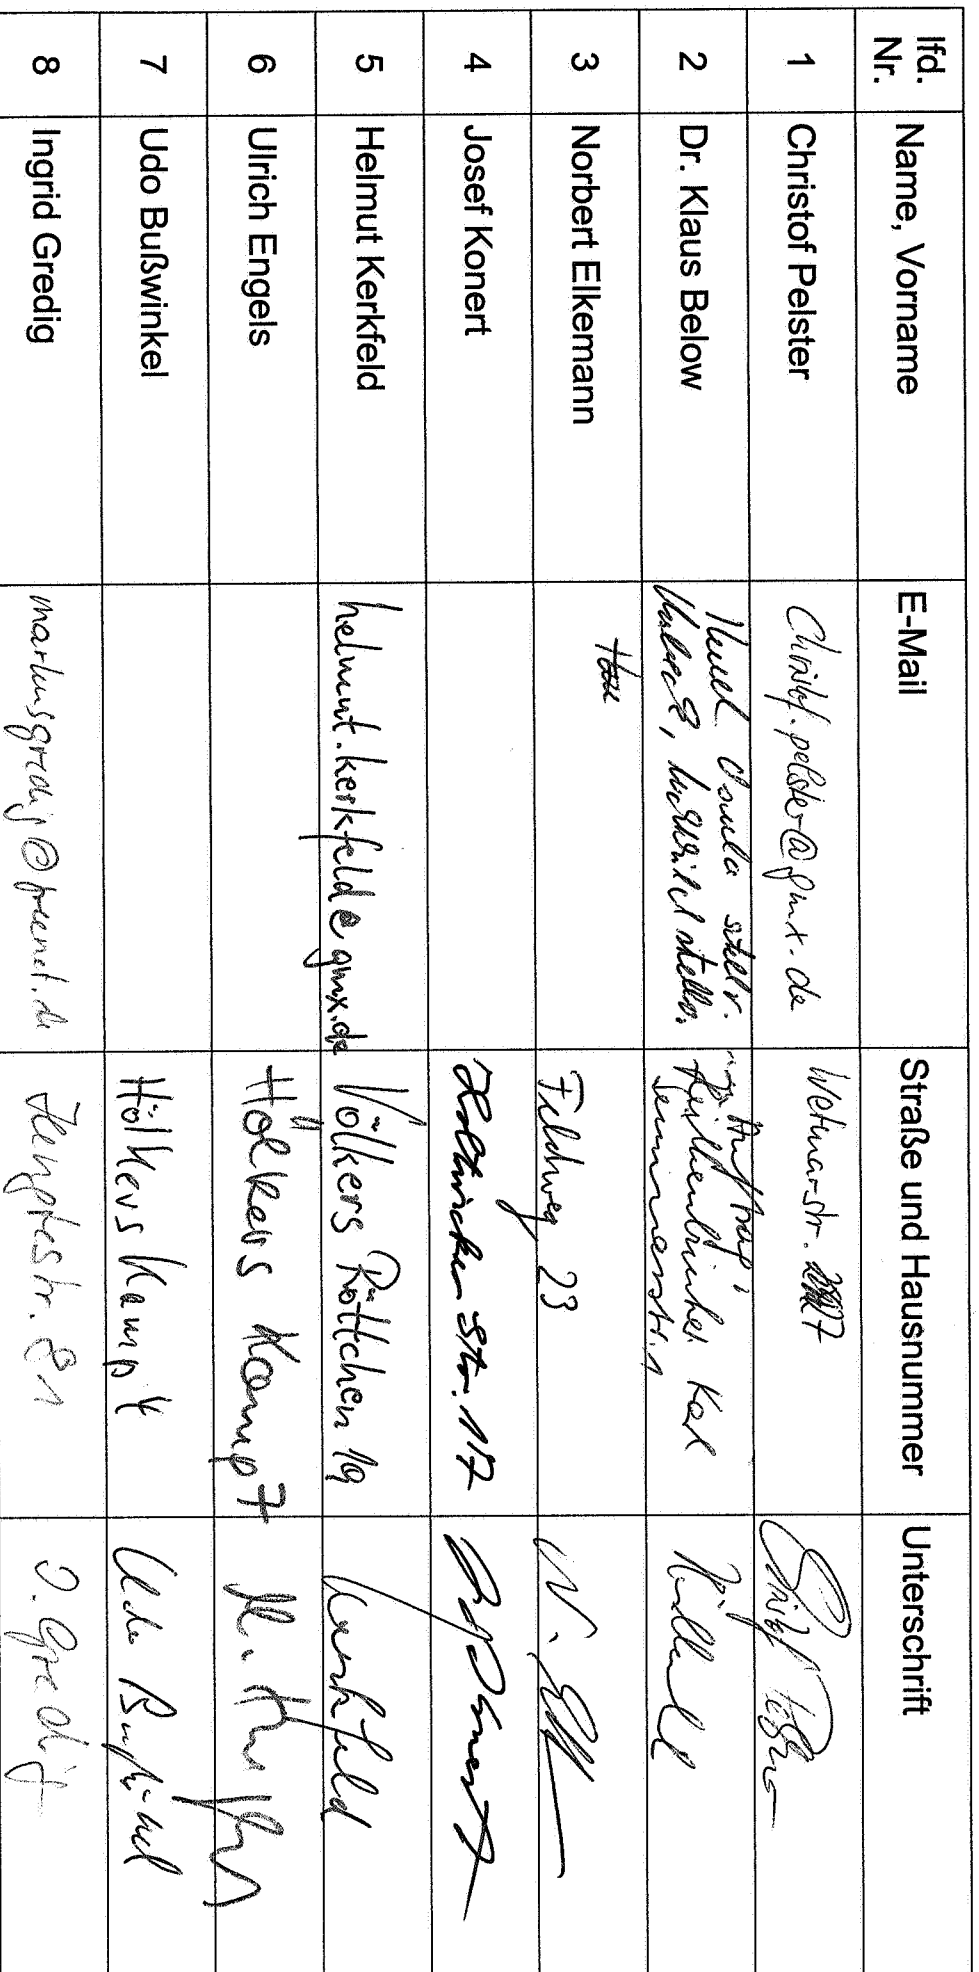 lfd. Nr. Name, Vorname E-Mail Straße und Hausnummer Unterschrift
1 Christof Pelster Christof.pelster@gmx.de Weimarstr.
2 Dr. Klaus Below
3 Norbert Elkemann Feldweg 23 N.
4 Josef Konert Str. 117
5 Helmut Kerkfeld helmut.kerkfeld@gmx.de Völkers Röttchen 19 Kerkfeld
6 Ulrich Engels Hölkers Kamp 7
7 Udo Bußwinkel Hölkers Kamp 4 Udo Bußwinkel
8 Ingrid Gredig markusgredig@freenet.de 81 I. Gredig